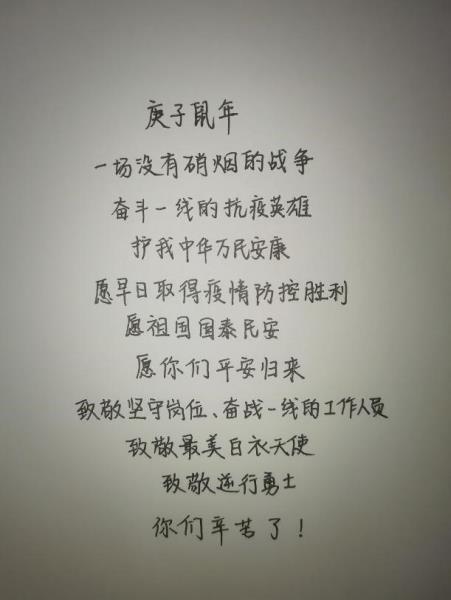 庚子鼠年
一场没有硝烟的战争
奋斗一线的抗疫英雄
护我中华万民安康
愿早日取得疫情防控胜利
愿祖国国泰民安
愿你们平安归来
致敬坚守岗位、奋战一线的工作人员
致敬最美白衣天使
致敬逆行勇士
你们辛苦了！